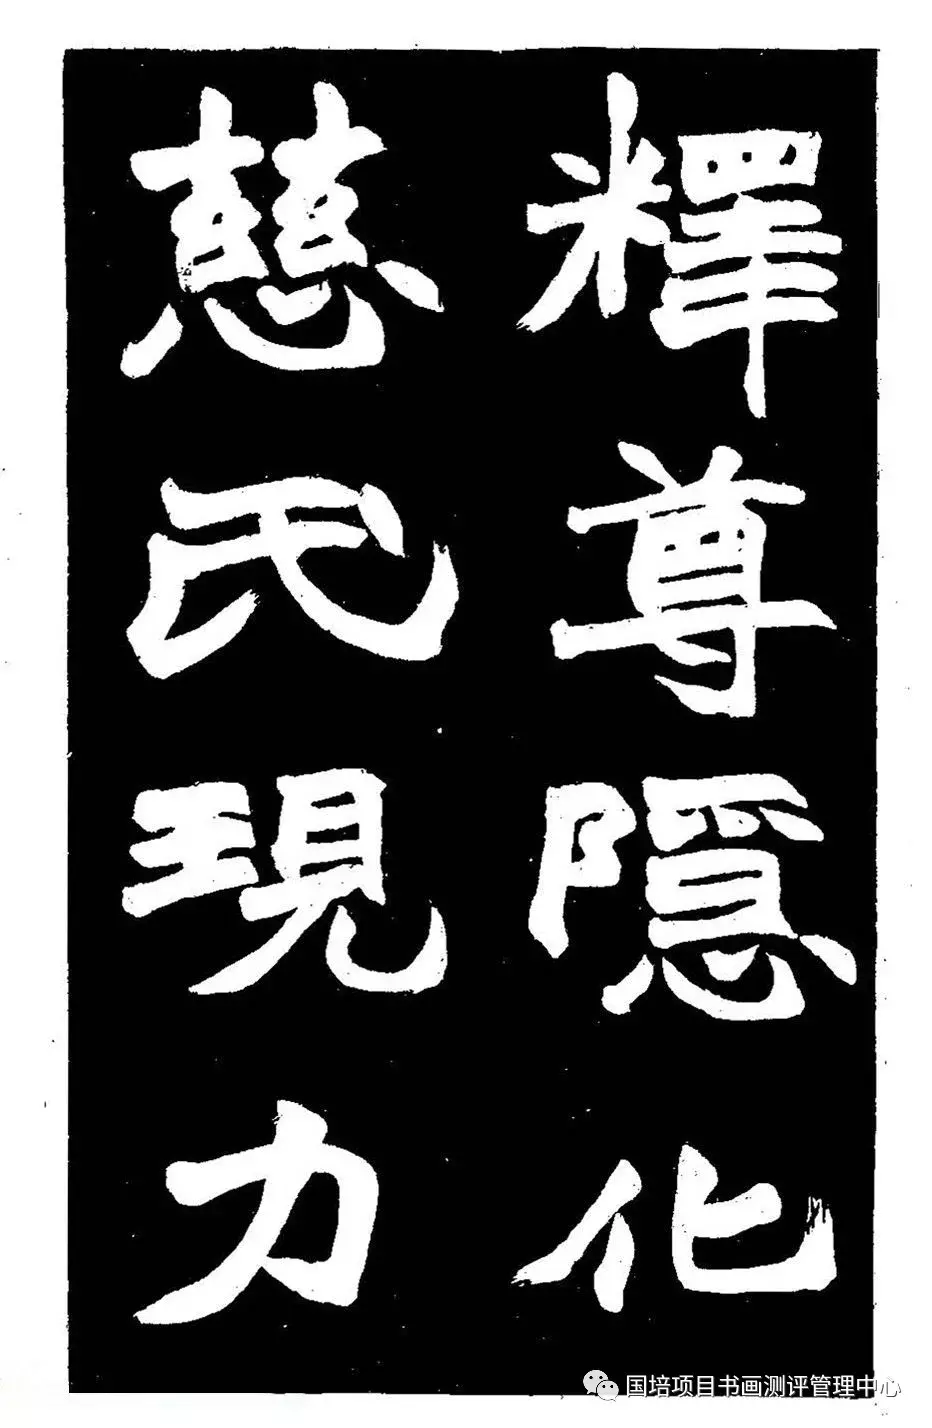 釋尊隱化
慈氏現力
国培项目书画测评管理中心